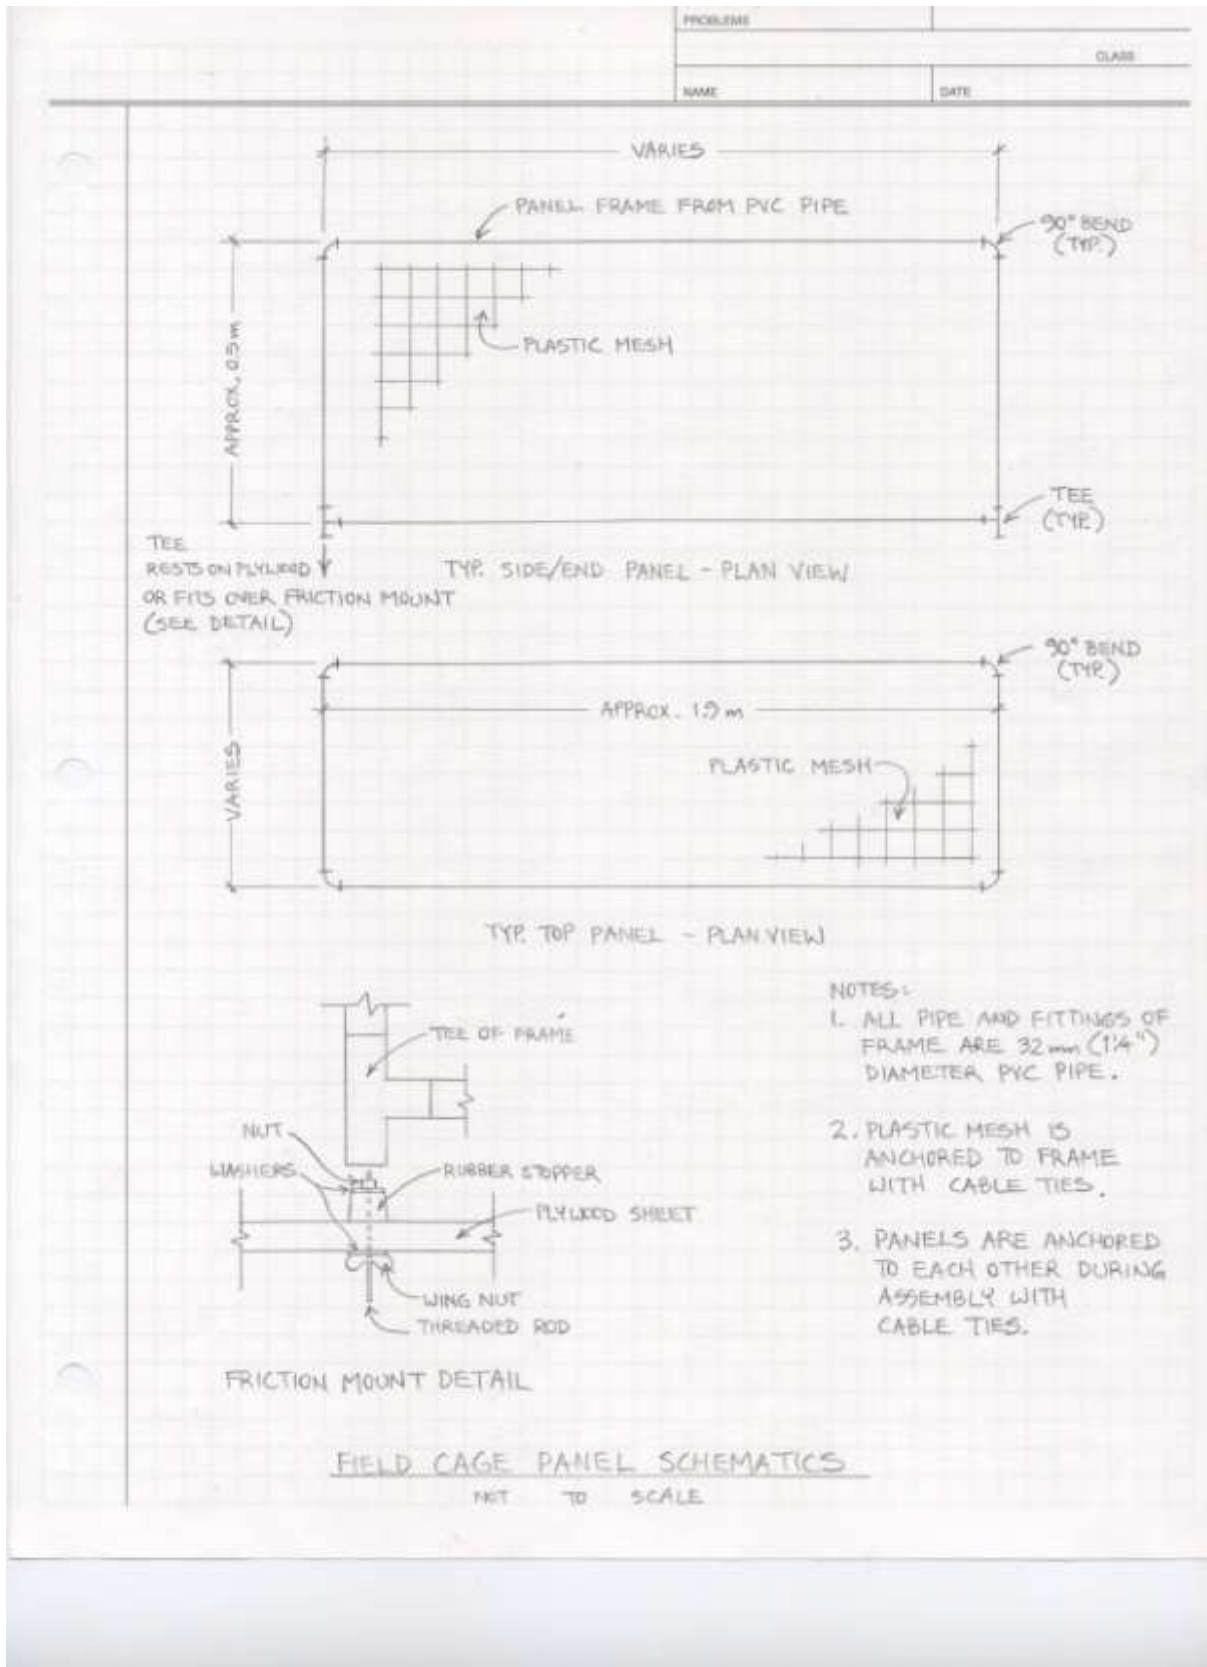 PROBLEMS
CLASS
NAME
DATE
VARIES
PANEL FRAME FROM PVC PIPE
90° BEND
(TYP.)
APPROX. 0.9 m
PLASTIC MESH
TEE
(TYP.)
TEE
RESTS ON PLYWOOD
OR FITS OVER FRICTION MOUNT
(SEE DETAIL)
TYP. SIDE/END PANEL - PLAN VIEW
90° BEND
(TYP.)
APPROX. 1.9 m
VARIES
PLASTIC MESH
TYP. TOP PANEL - PLAN VIEW
TEE OF FRAME
NUT
WASHERS
RUBBER STOPPER
PLYWOOD SHEET
WING NUT
THREADED ROD
FRICTION MOUNT DETAIL
NOTES:
1. ALL PIPE AND FITTINGS OF
FRAME ARE 32 mm (1¼")
DIAMETER PVC PIPE.
2. PLASTIC MESH IS
ANCHORED TO FRAME
WITH CABLE TIES.
3. PANELS ARE ANCHORED
TO EACH OTHER DURING
ASSEMBLY WITH
CABLE TIES.
FIELD CAGE PANEL SCHEMATICS
NOT TO SCALE